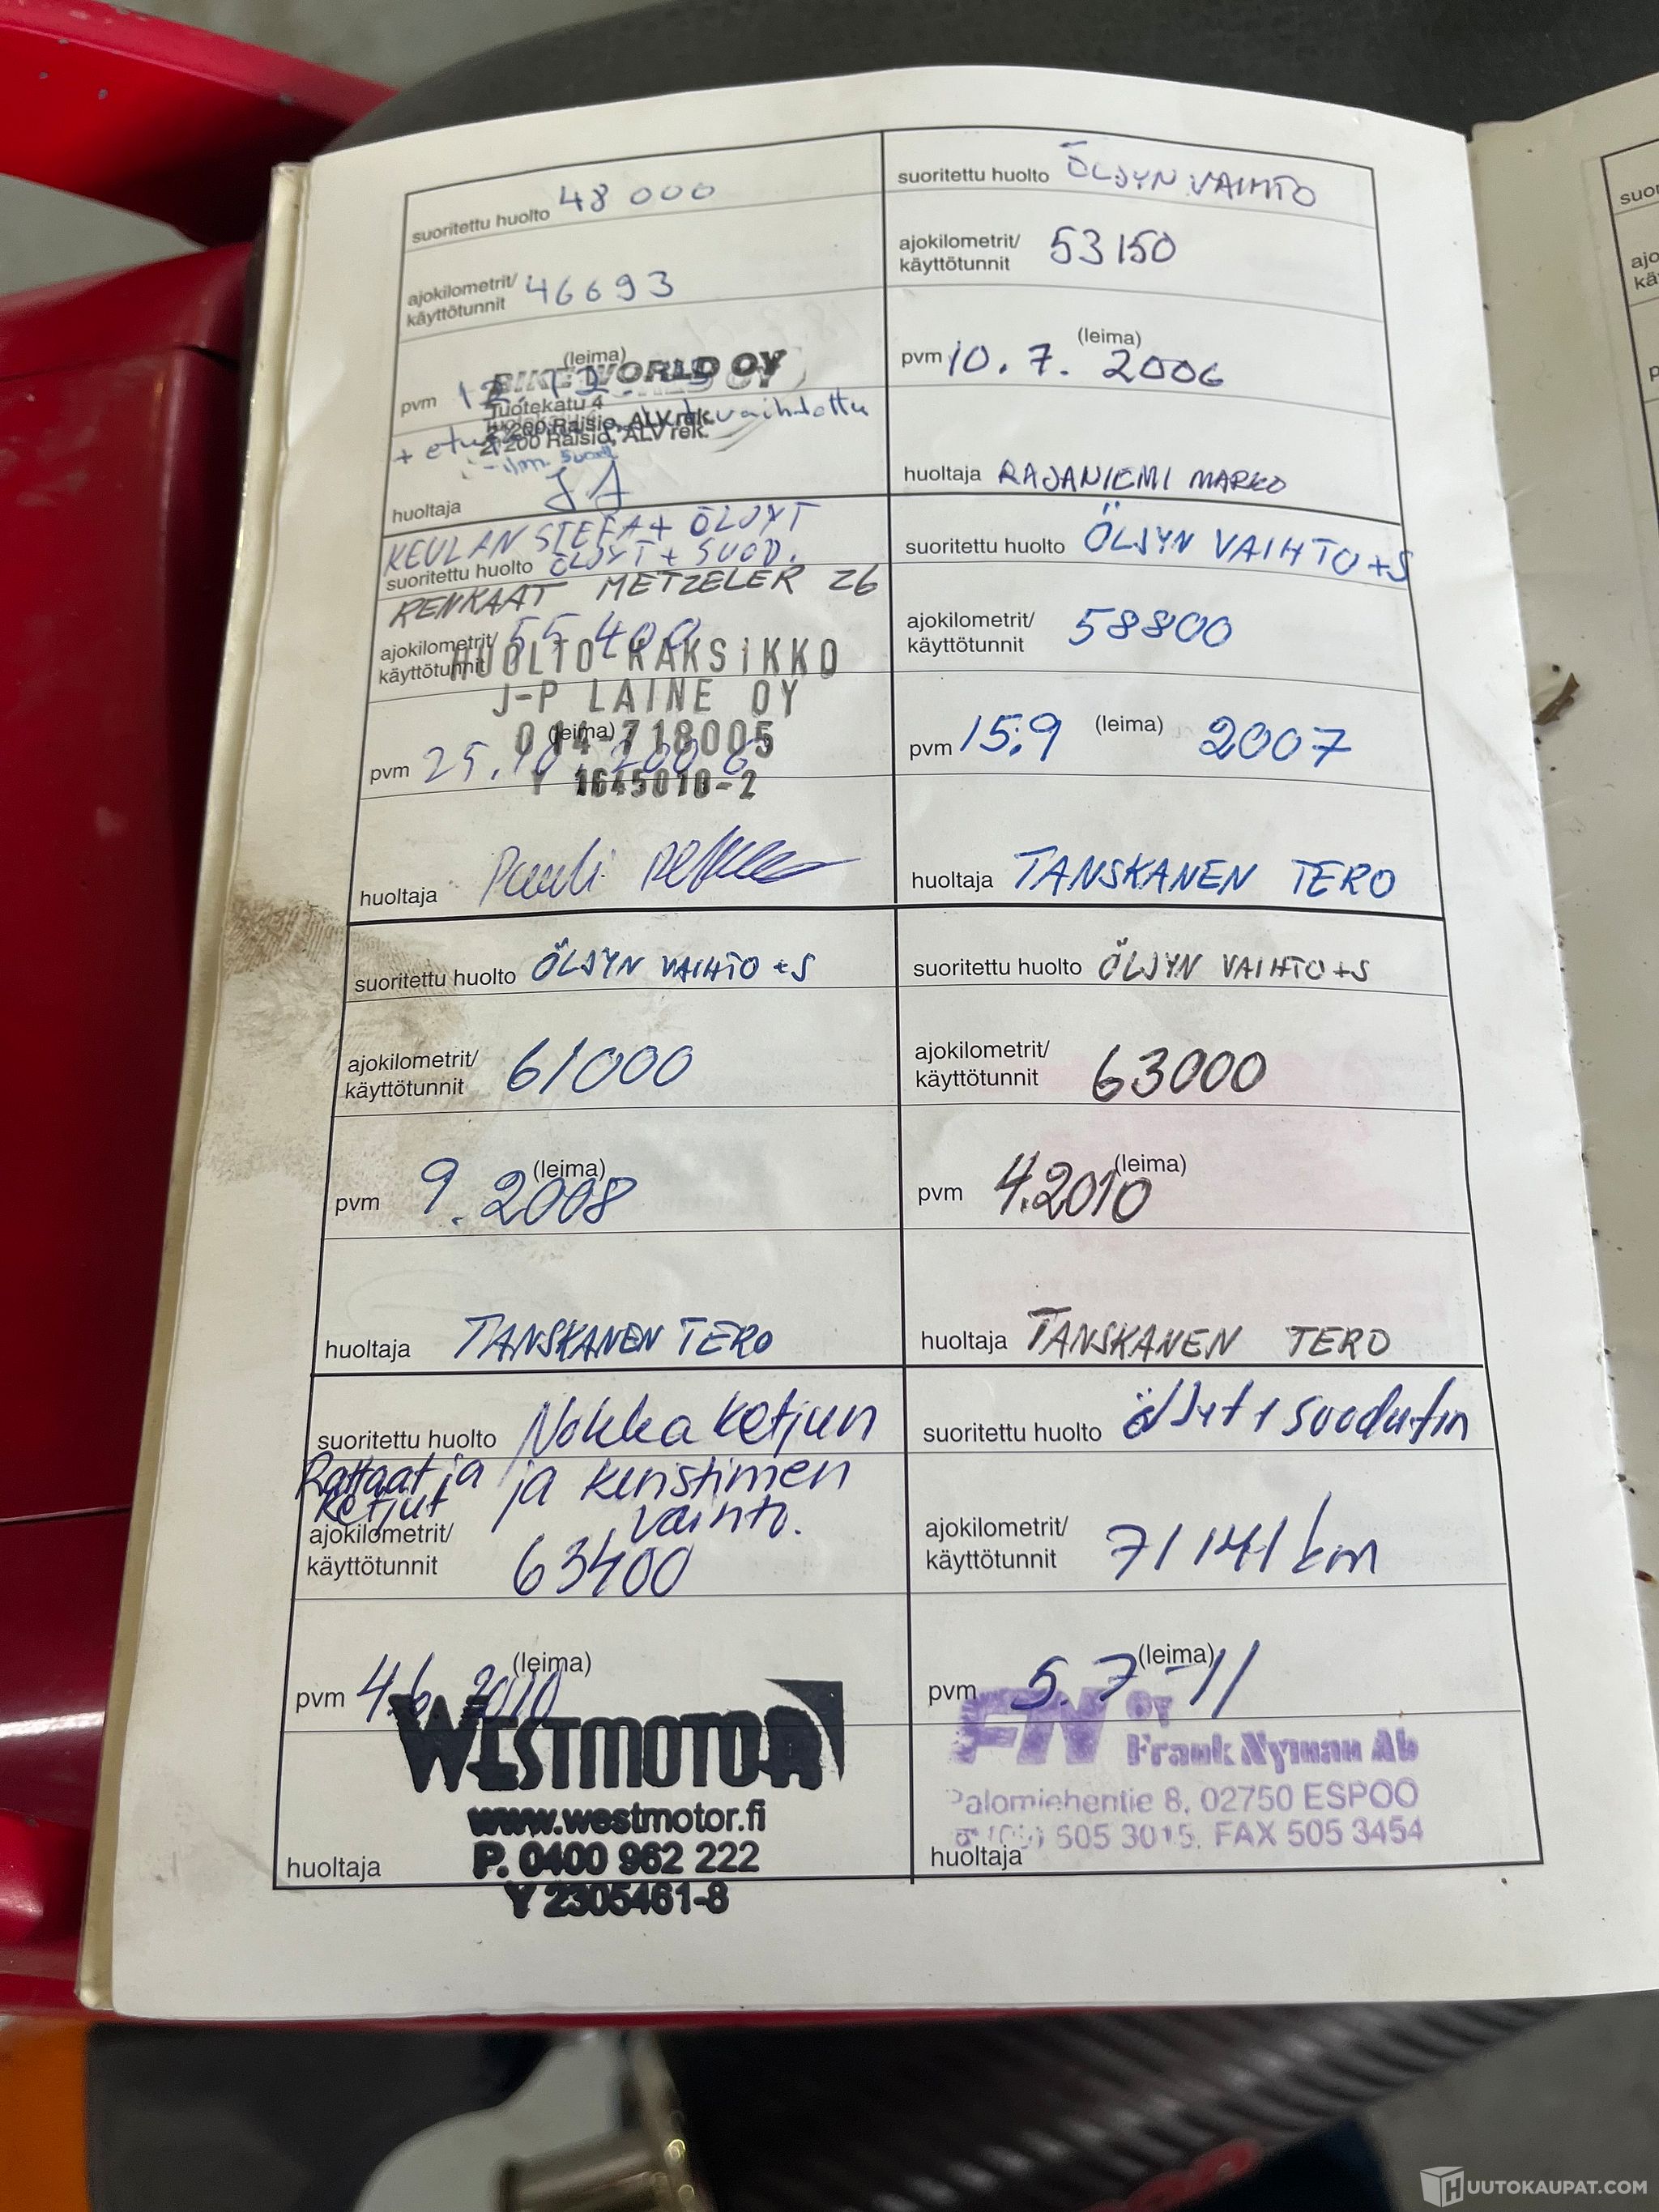 suoritettu huolto 48 000
ajokilometrit/
käyttötunnit 46693
(leima)
BIKE WORLD OY
pvm 12.12.
Tuotekatu 4
21200 Raisio, ALV rek.
+ vaihdettu
huoltaja
suoritettu huolto ÖLJYN VAIHTO
ajokilometrit/
käyttötunnit 53150
(leima)
pvm 10.7. 2006
huoltaja RAJANIEMI MARKO
KEULAN STEFA + ÖLJYT
suoritettu huolto ÖLJYT + SUOD.
RENKAAT METZELER Z6
ajokilometrit/
käyttötunnit 55 400
HUOLTO-KAKSIKKO
J-P LAINE OY
014-718005
(leima)
pvm 25.10.2006
Y 1645010-2
huoltaja Pauli
suoritettu huolto ÖLJYN VAIHTO +S
ajokilometrit/
käyttötunnit 58800
pvm 15.9 (leima) 2007
huoltaja TANSKANEN TERO
suoritettu huolto ÖLJYN VAIHTO +S
ajokilometrit/
käyttötunnit 61000
(leima)
pvm 9.2008
huoltaja TANSKANEN TERO
suoritettu huolto ÖLJYN VAIHTO +S
ajokilometrit/
käyttötunnit 63000
(leima)
pvm 4.2010
huoltaja TANSKANEN TERO
suoritettu huolto Nokkaketjun
Rattaat ja ja kiristimen
ketjut vaihto.
ajokilometrit/
käyttötunnit 63400
(leima)
pvm 4.6 2010
WESTMOTOR
www.westmotor.fi
P. 0400 962 222
huoltaja
Y 2305461-8
suoritettu huolto öljyt + suodatin
ajokilometrit/
käyttötunnit 71141 km
(leima)
pvm 5.7-11
FN OY
Frank Nyman Ab
Palomiehentie 8, 02750 ESPOO
505 3015, FAX 505 3454
huoltaja
HUUTOKAUPAT.COM